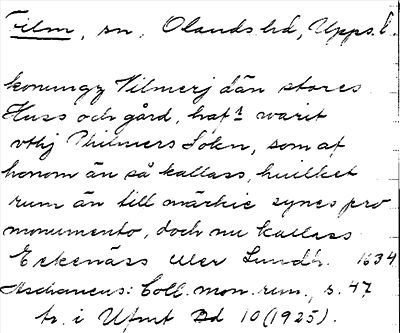 Film, sn, Olands hd, Upps. l.
konungz Vilmerj dän stores
Huss och gård, haf:r warit
vthj Philmers Sokn, som af
honom än så kallass, huilket
rum än till märkie synes pro
monumento, doch nu kallass
Eckenäss eller Sundh. 1634
Aschaneus: Coll. mon. run., s. 47
tr. i Ufmt Bd 10 (1925).